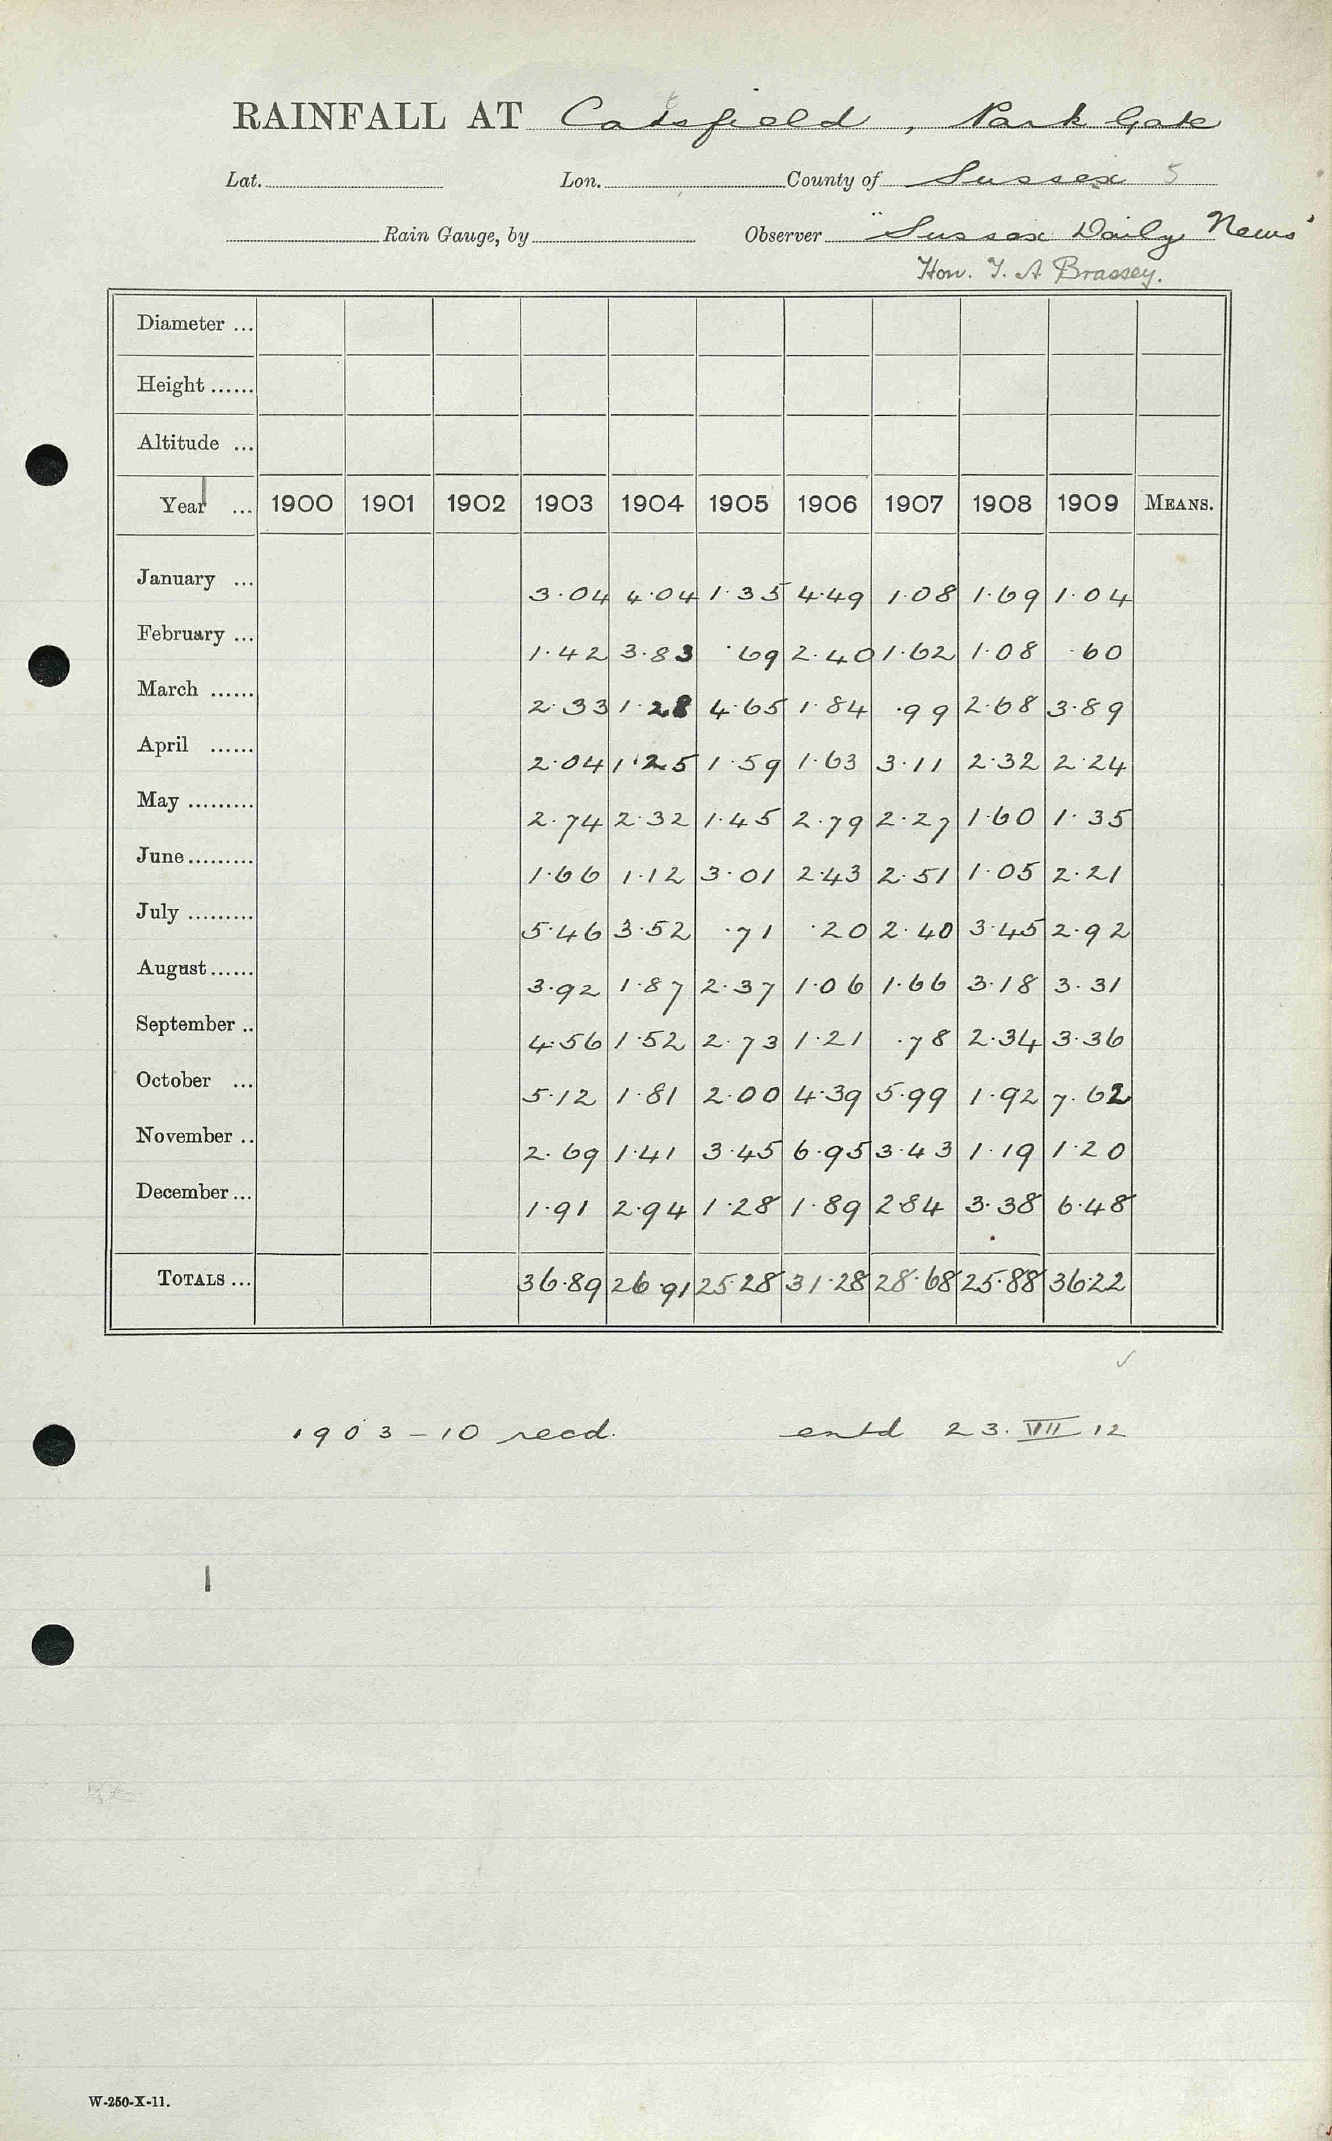 RAINFALL AT Catsfield, Park Gate
Lat. Lon. County of Sussex 5
Rain Gauge, by Observer "Sussex Daily News"
Hon. T. A Brassey.
Diameter ...
Height ......
Altitude ...
Year ... 1900 1901 1902 1903 1904 1905 1906 1907 1908 1909 MEANS.
January ... 3.04 4.04 1.35 4.49 1.08 1.69 1.04
February ... 1.42 3.83 .69 2.40 1.62 1.08 .60
March ...... 2.33 1.28 4.65 1.84 .99 2.68 3.89
April ...... 2.04 1.25 1.59 1.63 3.11 2.32 2.24
May ......... 2.74 2.32 1.45 2.79 2.27 1.60 1.35
June ......... 1.66 1.12 3.01 2.43 2.51 1.05 2.21
July ......... 5.46 3.52 .71 .20 2.40 3.45 2.92
August ...... 3.92 1.87 2.37 1.06 1.66 3.18 3.31
September .. 4.56 1.52 2.73 1.21 .78 2.34 3.36
October ... 5.12 1.81 2.00 4.39 5.99 1.92 7.62
November .. 2.69 1.41 3.45 6.95 3.43 1.19 1.20
December ... 1.91 2.94 1.28 1.89 2.84 3.38 6.48
TOTALS ... 36.89 26.91 25.28 31.28 28.68 25.88 36.22
1903-10 recd. entd 23.VII 12
W-250-X-11.